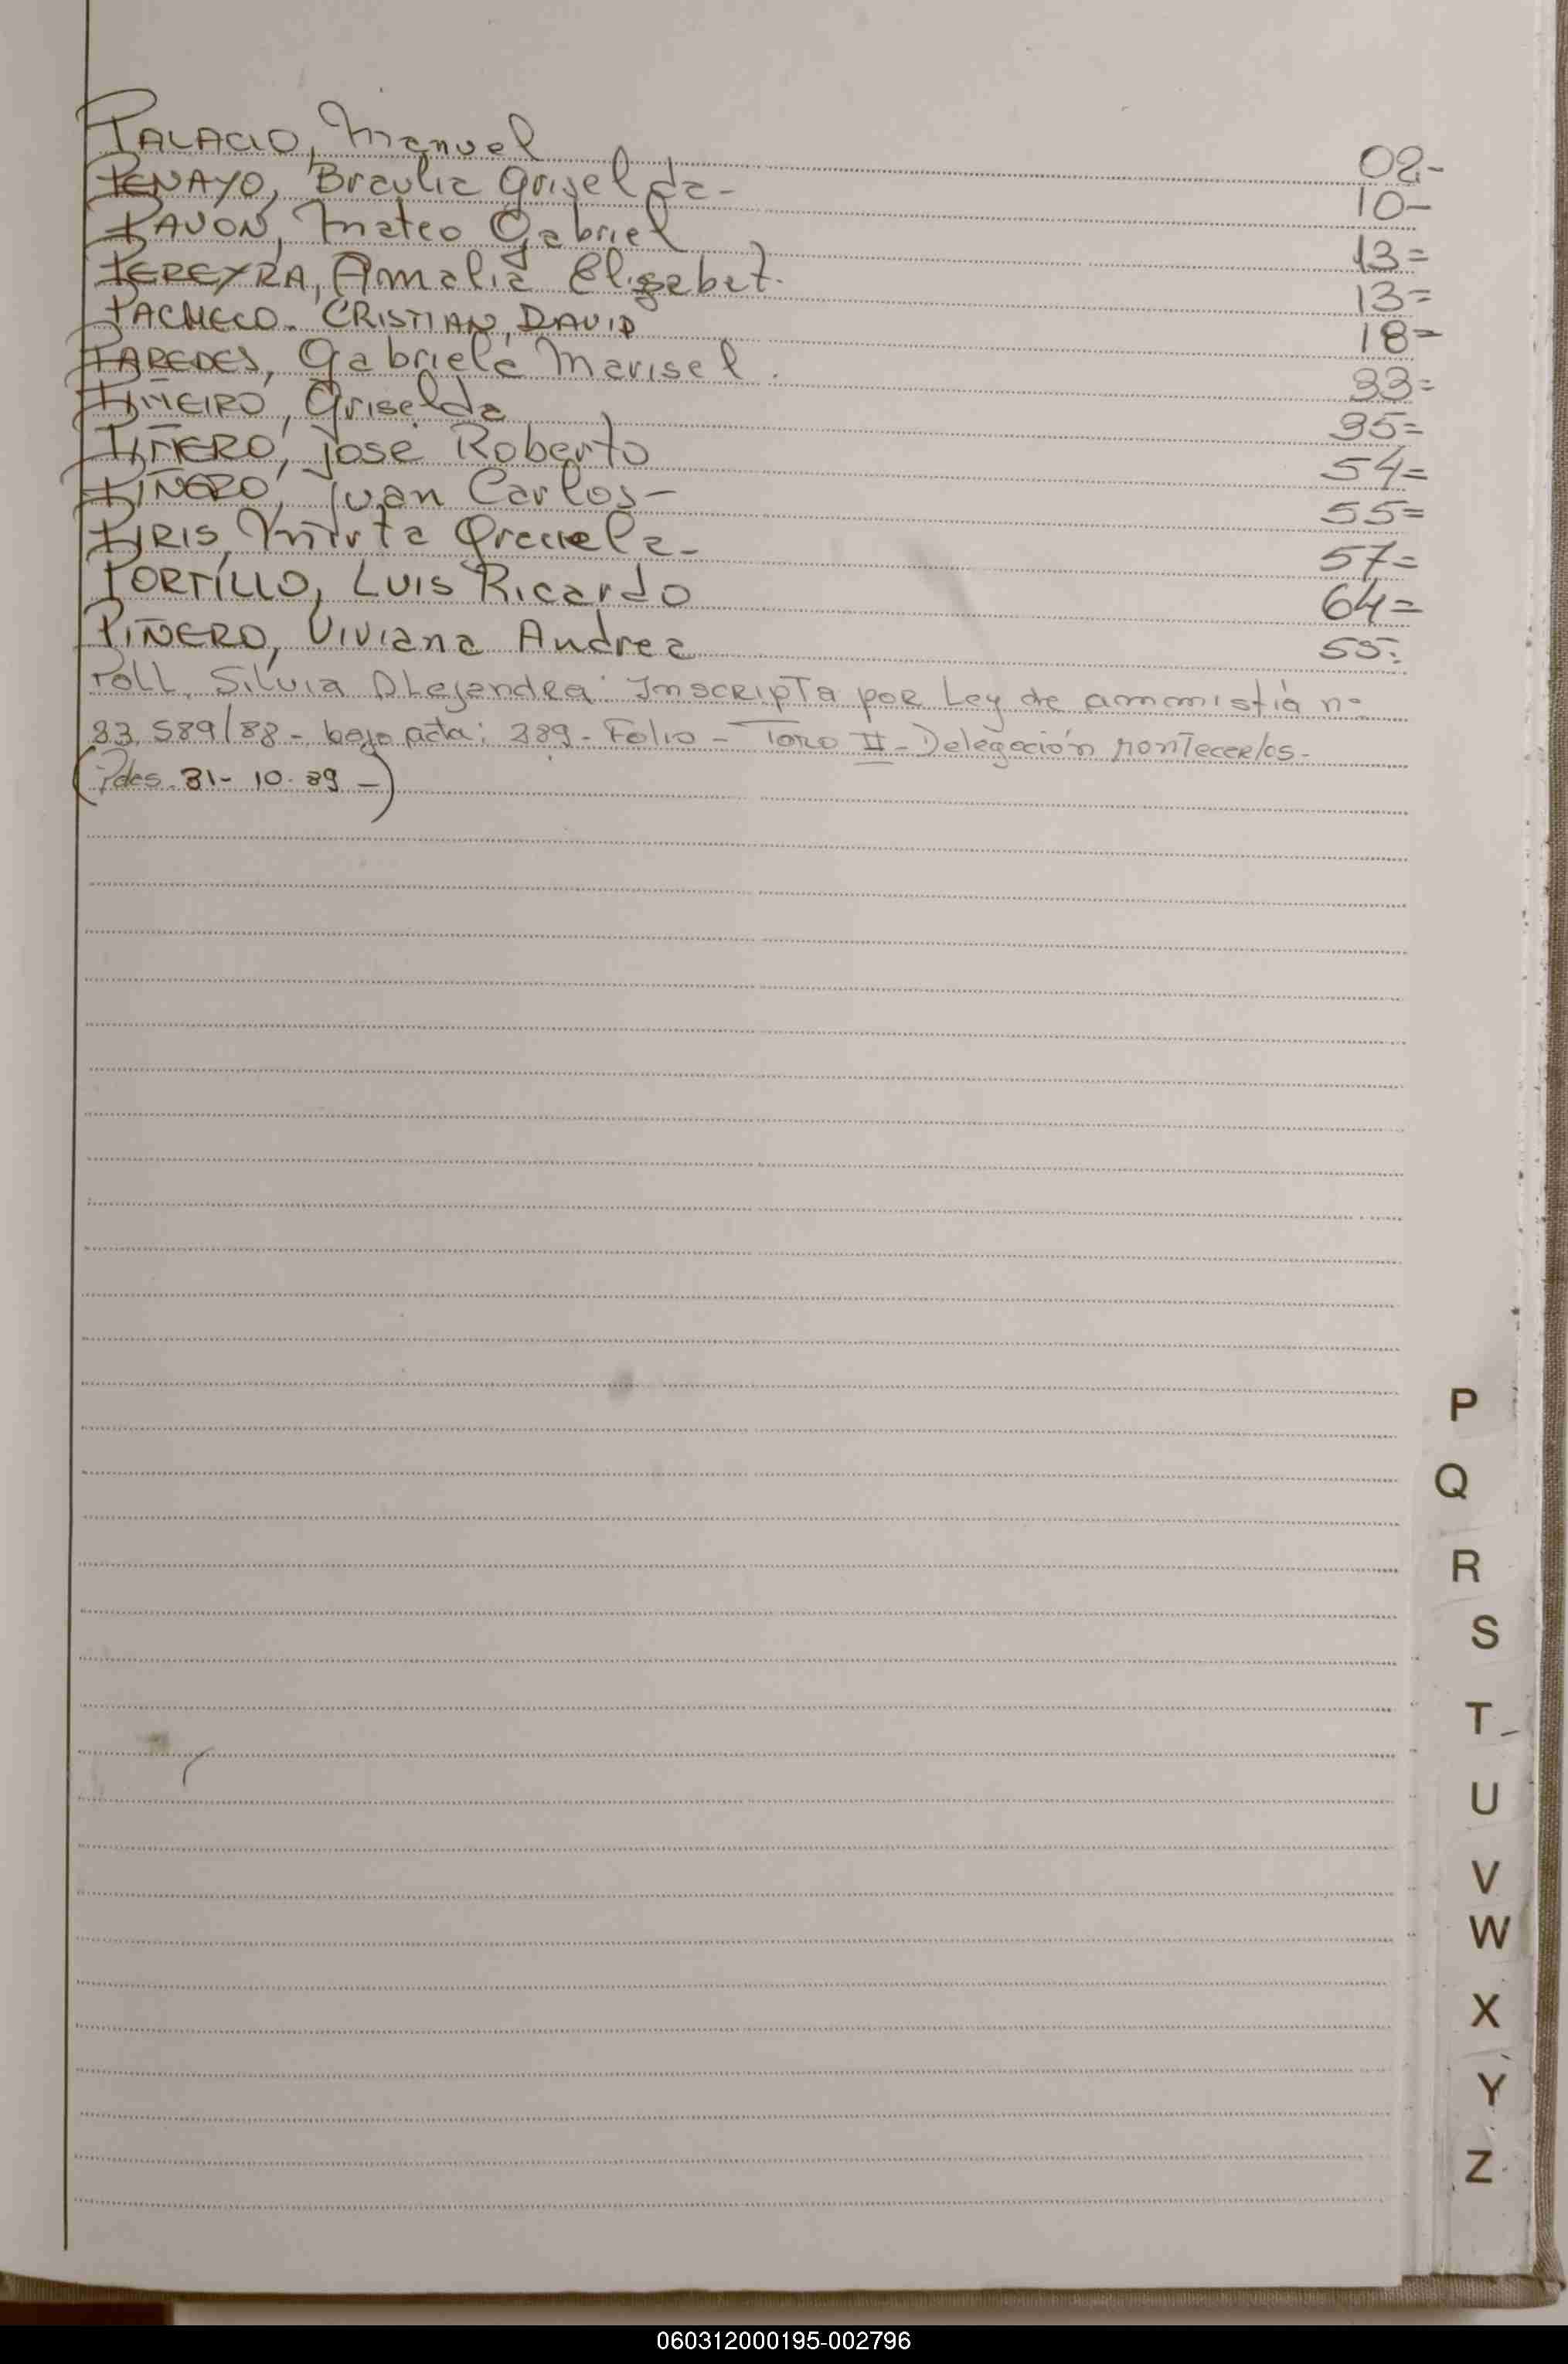 PALACIO, Manuel 02-
PENAYO, Braulia Griselda- 10-
PAVON, Mateo Gabriel 13=
PEREYRA, Amalia Elizabet. 13=
PACHECO. CRISTIAN, DAVID 18=
PAREDES, Gabriela Marisel. 33=
PIÑEIRO, Griselda 35=
PIÑERO, José Roberto 54=
PIÑERO, Juan Carlos- 55=
PIRIS, Mirta Graciela- 57=
PORTILLO, Luis Ricardo 64=
PIÑERO, Viviana Andrea 55-
Poll, Silvia Alejandra: Inscripta por Ley de ammistía nº
23.589/88- bajo acta: 389- Folio- Tomo II- Delegación Montecarlos-
(Pdas. 31-10-89-)
P
Q
R
S
T
U
V
W
X
Y
Z
060312000195-002796